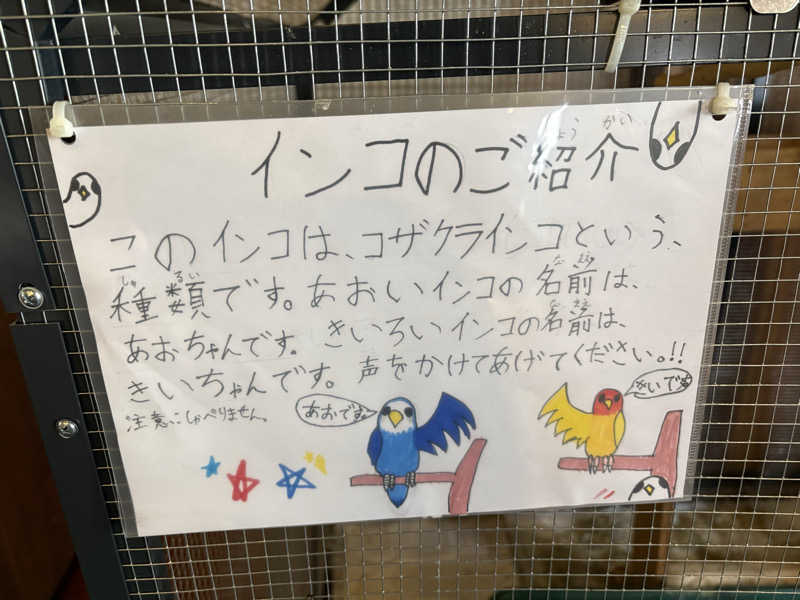 インコのご紹介
このインコは、コザクラインコという、
種類です。あおいインコの名前は、
あおちゃんです。きいろいインコの名前は、
きいちゃんです。声をかけてあげてください。!!
注意…しゃべりません。
あおです。
きいです